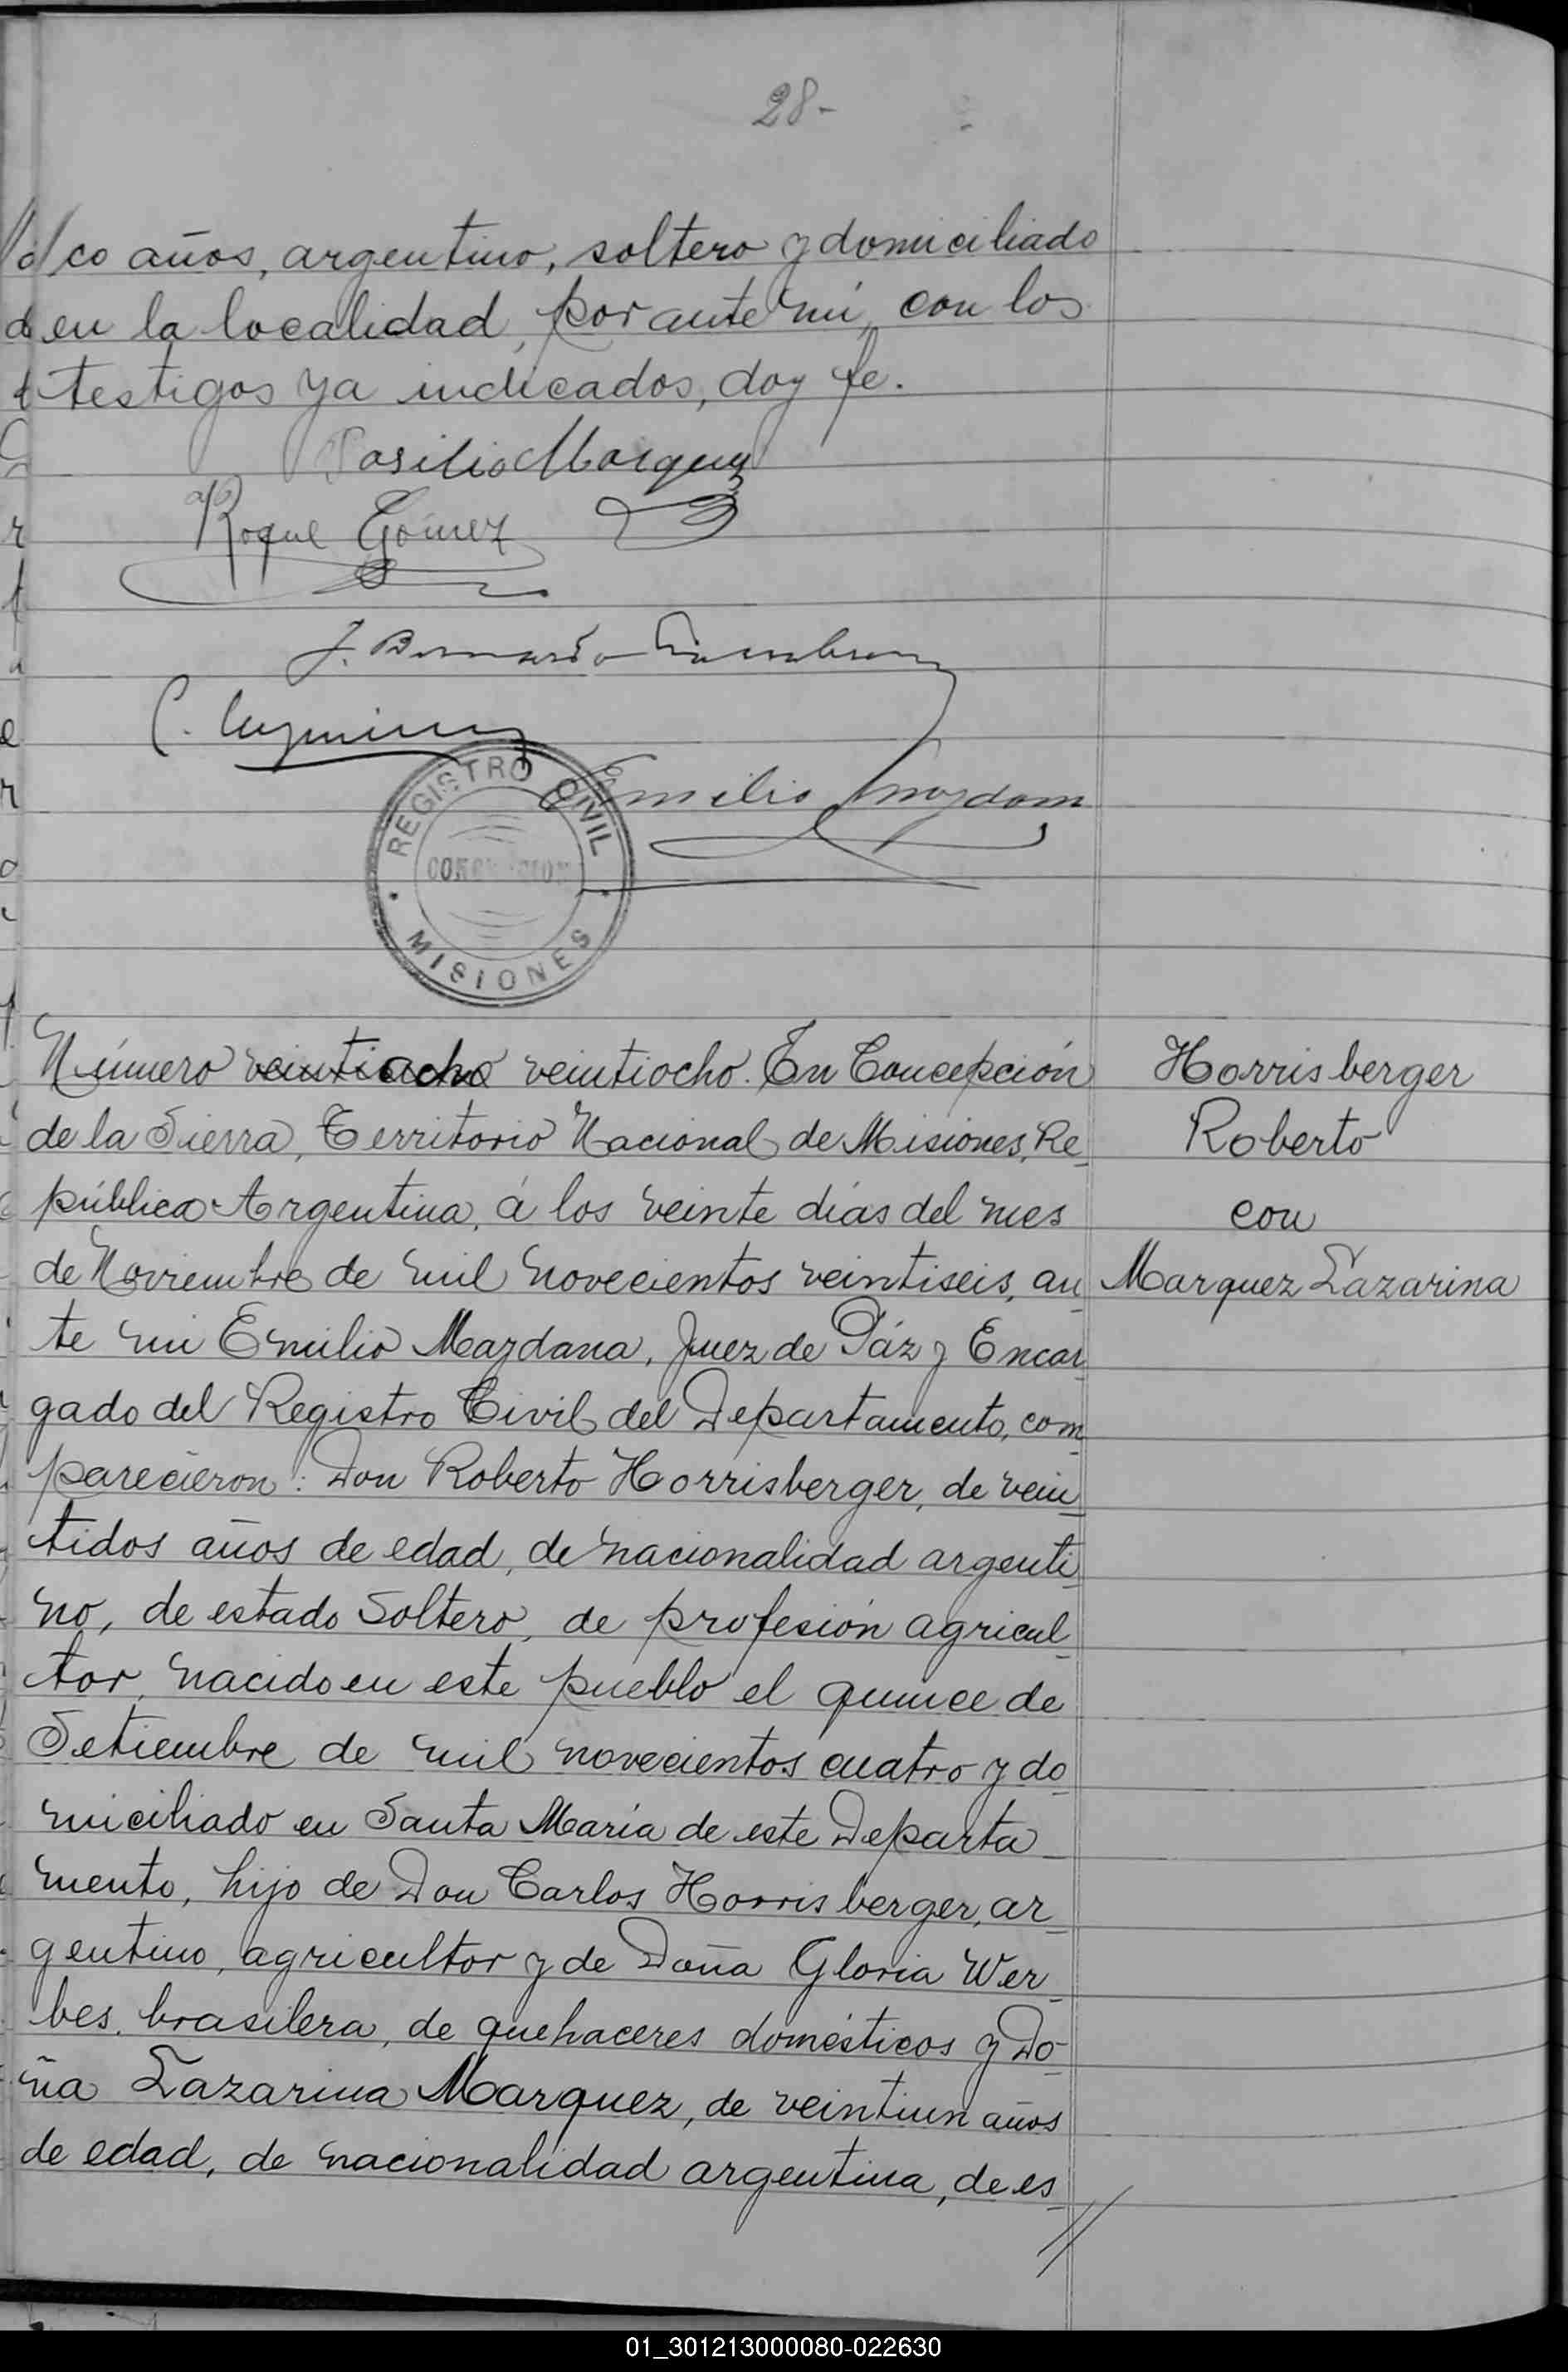 28-
co años, argentino, soltero y domiciliado
en la localidad, por ante mí, con los
testigos ya indicados, doy fe.
Roque Gómez
J. Bernardo
C.
Emilio
REGISTRO CIVIL
CONCEPCION
MISIONES
Número veintiocho veintiocho. En Concepción
de la Sierra, Territorio Nacional de Misiones, Re
pública Argentina, á los veinte días del mes
de Noviembre de mil novecientos veintiseis, an
te mi Emilio Mazdana, Juez de Páz y Encar
gado del Registro Civil del Departamento, com
parecieron: Don Roberto Horrisberger, de vein
tidos años de edad, de nacionalidad argenti
no, de estado Soltero, de profesión agricul
tor, nacido en este pueblo el quince de
Setiembre de mil novecientos cuatro y do
miciliado en Santa María de este Departa
mento, hijo de Don Carlos Horrisberger, ar
gentino, agricultor y de Doña Gloria Wer
bes, brasilera, de quehaceres domésticos y Do
ña Lazarina Marquez, de veintiun años
de edad, de nacionalidad argentina, de es
//
Horrisberger
Roberto
con
Marquez Lazarina
01_301213000080-022630